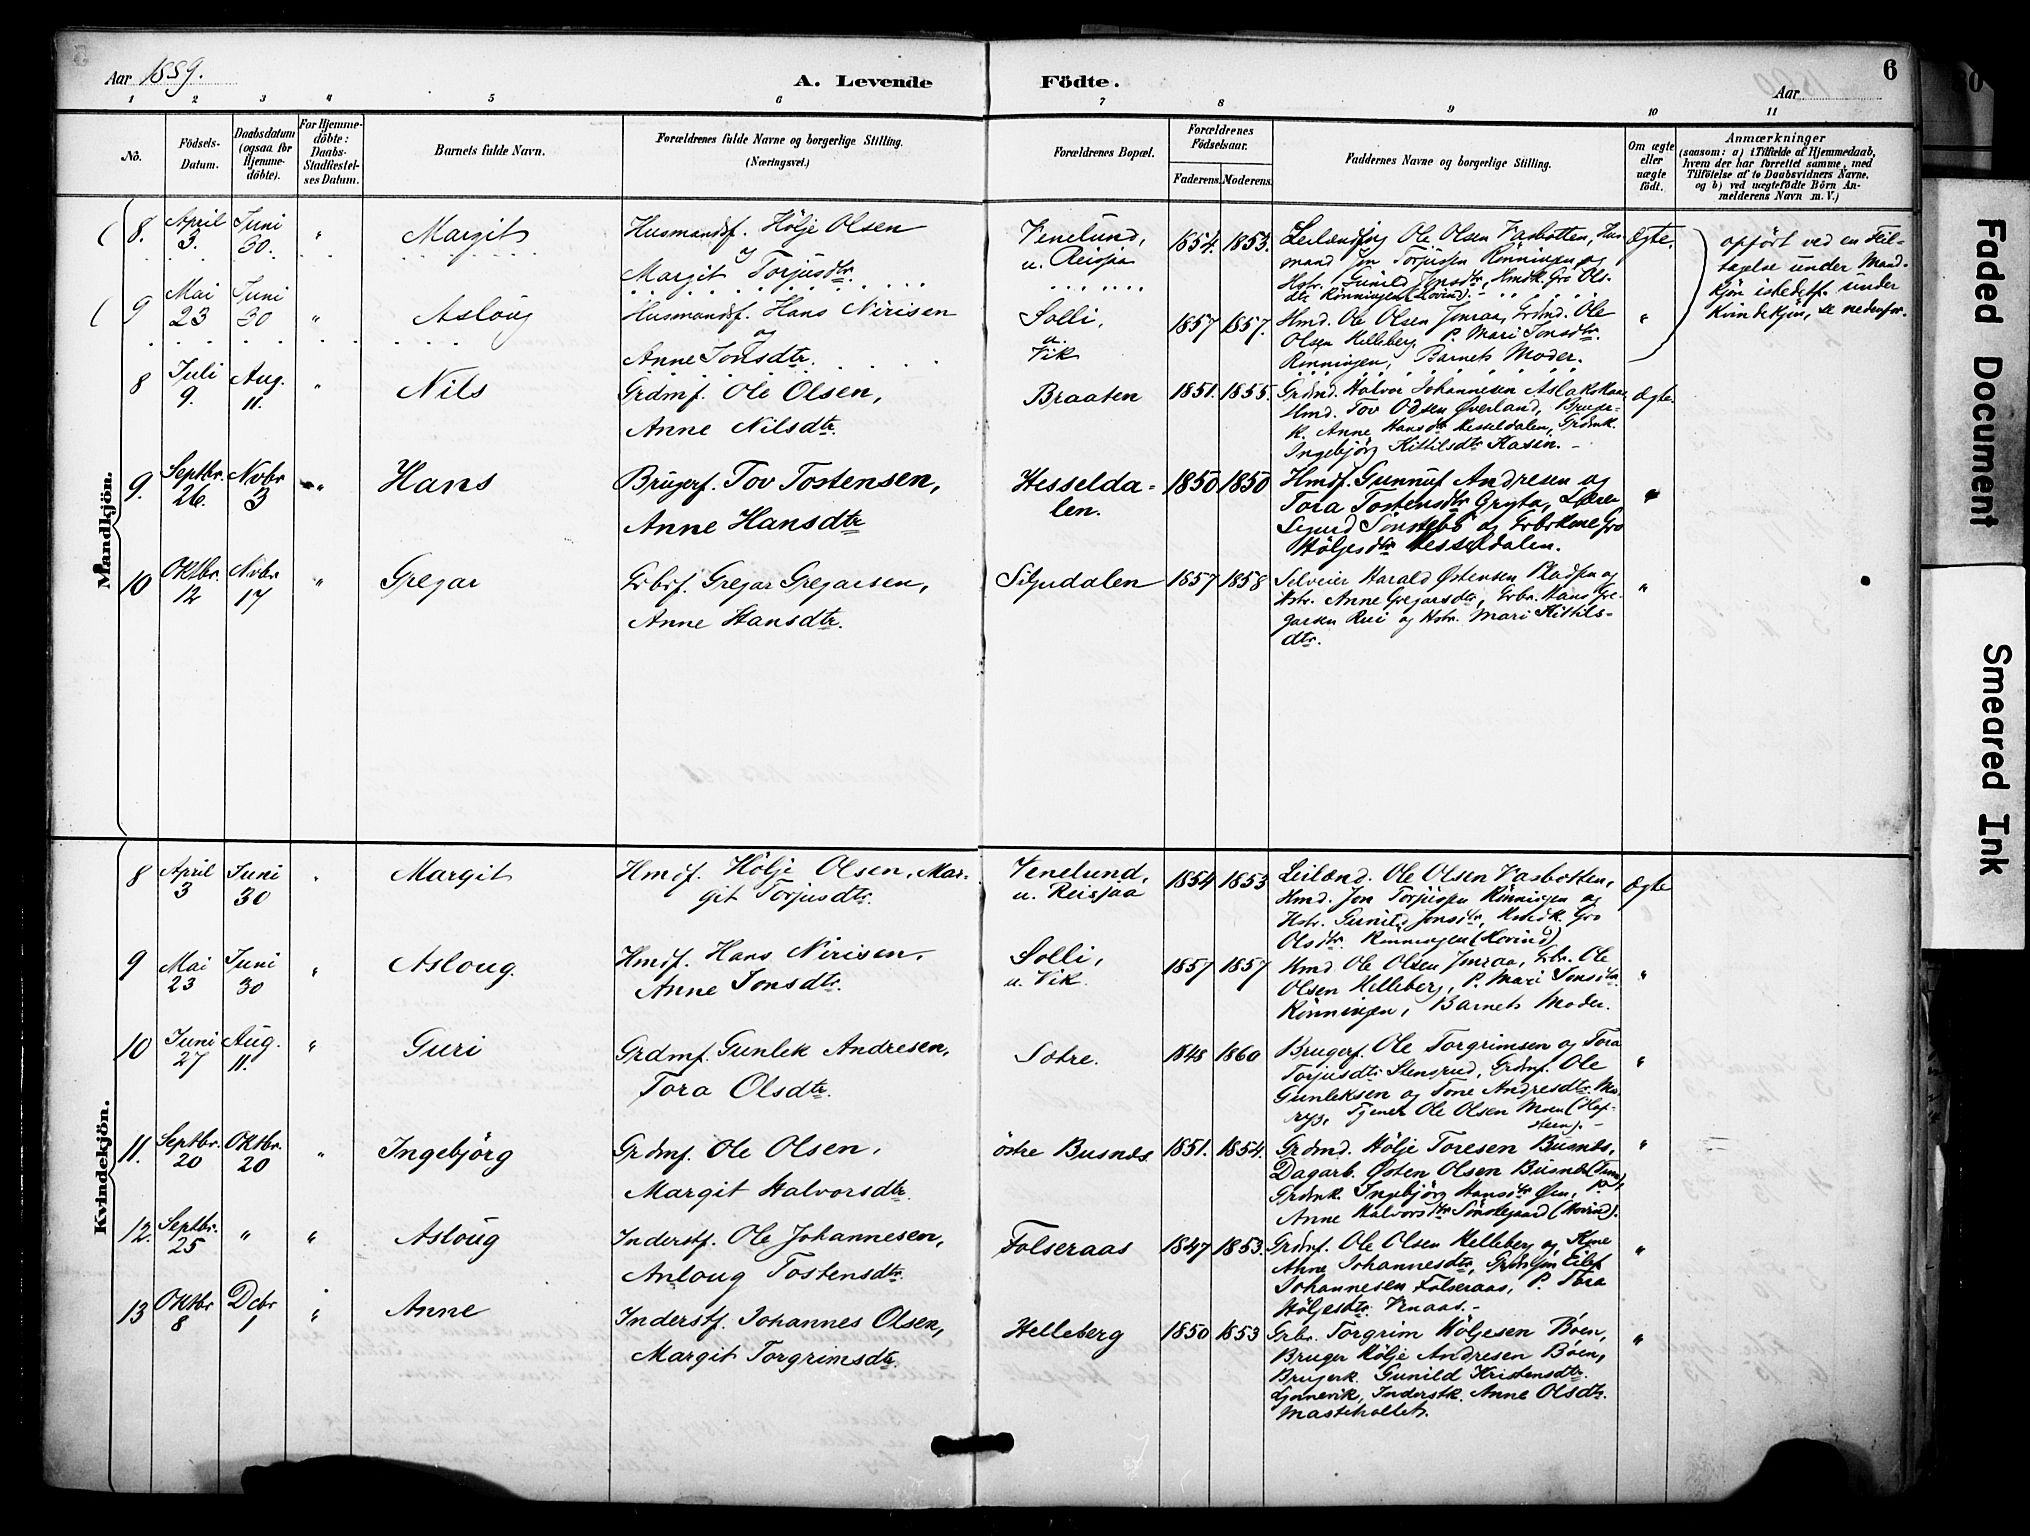 Aar 1889.
A. Levende
Födte.
Aar
6
1 2 3 4 5 6 7 8 9 10 11
No.
Födsels-
Datum.
Daabsdatum
(ogsaa for
Hjemme-
döbte).
For Hjemme-
döbte:
Daabs-
Stadfæstel-
ses Datum.
Barnets fulde Navn.
Forældrenes fulde Navne og borgerlige Stilling.
(Næringsvei.)
Forældrenes Bopæl.
Forældrenes
Födselsaar.
Faderens. Moderens.
Faddernes Navne og borgerlige Stilling.
Om ægte
eller
uægte
födt.
Anmærkninger
(saasom: a) i Tilfælde af Hjemmedaab,
hvem der har forrettet samme, med
Tilföielse af to Daabsvidners Navne.
og b) ved uægtefödte Börn An-
melderens Navn m. V.)
Mandkjön.
8. April 3. Juni 30. " Margit
Husmandsf. Hölje Olsen
og
Margit Torjusdtr.
Venelund,
u. Reisjaa
1854. 1853.
Leilænding Ole Olsen Vasbotten, Hus-
mand Jon Torjusen Rönningen og
Hstr. Gunild Jonsdtr., Hmdk. Gro Ols-
dtr. Rönningen (Hovind).
Ægte.
opfört ved en Feil-
tagelse under Mand-
kjön istedetf. under
Kvindekjön, se nedenfor.
9 Mai 23 Juni 30 " Asloug
Husmandsf. Hans Nirisen
og
Anne Jonsdtr.
Solli,
u.
Vik
1857 1857.
Hmd. Ole Olsen Jonraa, Grdmd. Ole
Olsen Helleberg, P. Mari Jonsdtr.
Rönningen, Barnets Moder.
"
8 Juli 9. Aug. 11. " Nils
Grdmf. Ole Olsen,
Anne Nilsdtr.
Braaten
1851. 1855.
Grdmd. Halvor Johannesen Aslakskaas
Hmd. Tov Odsen Överland, Bruger-
k. Anne Hansdtr Hesseldalen, Grdmk.
Ingebjörg Kittilsdtr Kasin. -
Ægte.
9. Septbr. 26. Novbr 3 " Hans
Brugerf. Tov Tostensen,
Anne Hansdtr
Hesselda-
len.
1850 1850
Hmdf. Gunnuf Andresen og
Tora Tostensdtr Gryta, Lærer
Sigurd Sönstebö og Gbrkone Gro
Höljesdtr Hesseldalen.
"
10 Oktbr. 12 Novbr 17 " Gregar
Gbrf. Gregar Gregarsen,
Anne Hansdtr.
Siljudalen
1857 1858
Selveier Harald Östensen Pladsen og
Hstr. Anne Gregarsdtr, Gbr. Hans Gre-
garsen Rui og Hstr. Mari Kittils-
dtr.
"
Kvindekjön.
8 April 3 Juni 30 Margit
Hmdf. Hölje Olsen, Mar-
git Torjusdtr.
Venelund,
u. Reisjaa
1854 1853
Leilænd. Ole Olsen Vasbotten,
Hmd. Jon Torjusen Rönningen og
Hstr. Gunild Jonsdtr, Hmdk. Gro
Olsdtr. Rönningen (Hovind)
Ægte
9 Mai 23 Juni 30 " Asloug.
Hmdf. Hans Nirisen,
Anne Jonsdtr.
Solli,
u. Vik.
1857 1857
Hmd Ole Olsen Jonraa, Gbr. Ole
Olsen Helleberg, P. Mari Jonsdtr.
Rönningen, Barnets Moder.
"
10 Juni 27 Aug. 11. " Guri
Grdmf. Gunlek Andresen,
Tora Olsdtr.
Sotre.
1848 1860
Brugerf. Ole Torgrimsen og Tora
Torjusdtr Stensrud, Grdmf. Ole
Gunleksen og Tone Andresdtr. Mo-
Tjener Ole Olsen Moen (Hof-
steen). -
"
11. Septbr. 20 Oktbr. 20 " Ingebjörg
Grdmf. Ole Olsen,
Margit Halvorsdtr.
östre Busnes.
1851. 1854.
Grdmd. Hölje Toresen Busnes,
Dagarb. Östen Olsen Busnes
Grdmk. Ingebjörg Hansdtr Öen, P.
Anne Halvorsdtr Sönstegaard (Hovind).
"
12. Septbr. 25 " " Asloug
Inderstf. Ole Johannesen,
Anloug Tostensdtr.
Folseraas
1847 1853.
Grdmf. Ole Olsen Helleberg og Kone
Anne Johannesdtr, Eilef
Johannesen Folseraas, P. Tora
Höljesdtr Venaas. -
"
13 Oktbr 8 Dcbr 1 " Anne
Inderstf. Johannes Olsen,
Margit Torgrimsdtr.
Helleberg
1850 1853
Grbr. Torgrim Höljesen Böen,
Bruger Hölje Andresen Böen,
Brugerk. Gunild Kristensdtr.
Gjonnevik, Inderstk. Anne Olsdtr.
Mastekollet.
"
Faded Document
Smeared Ink